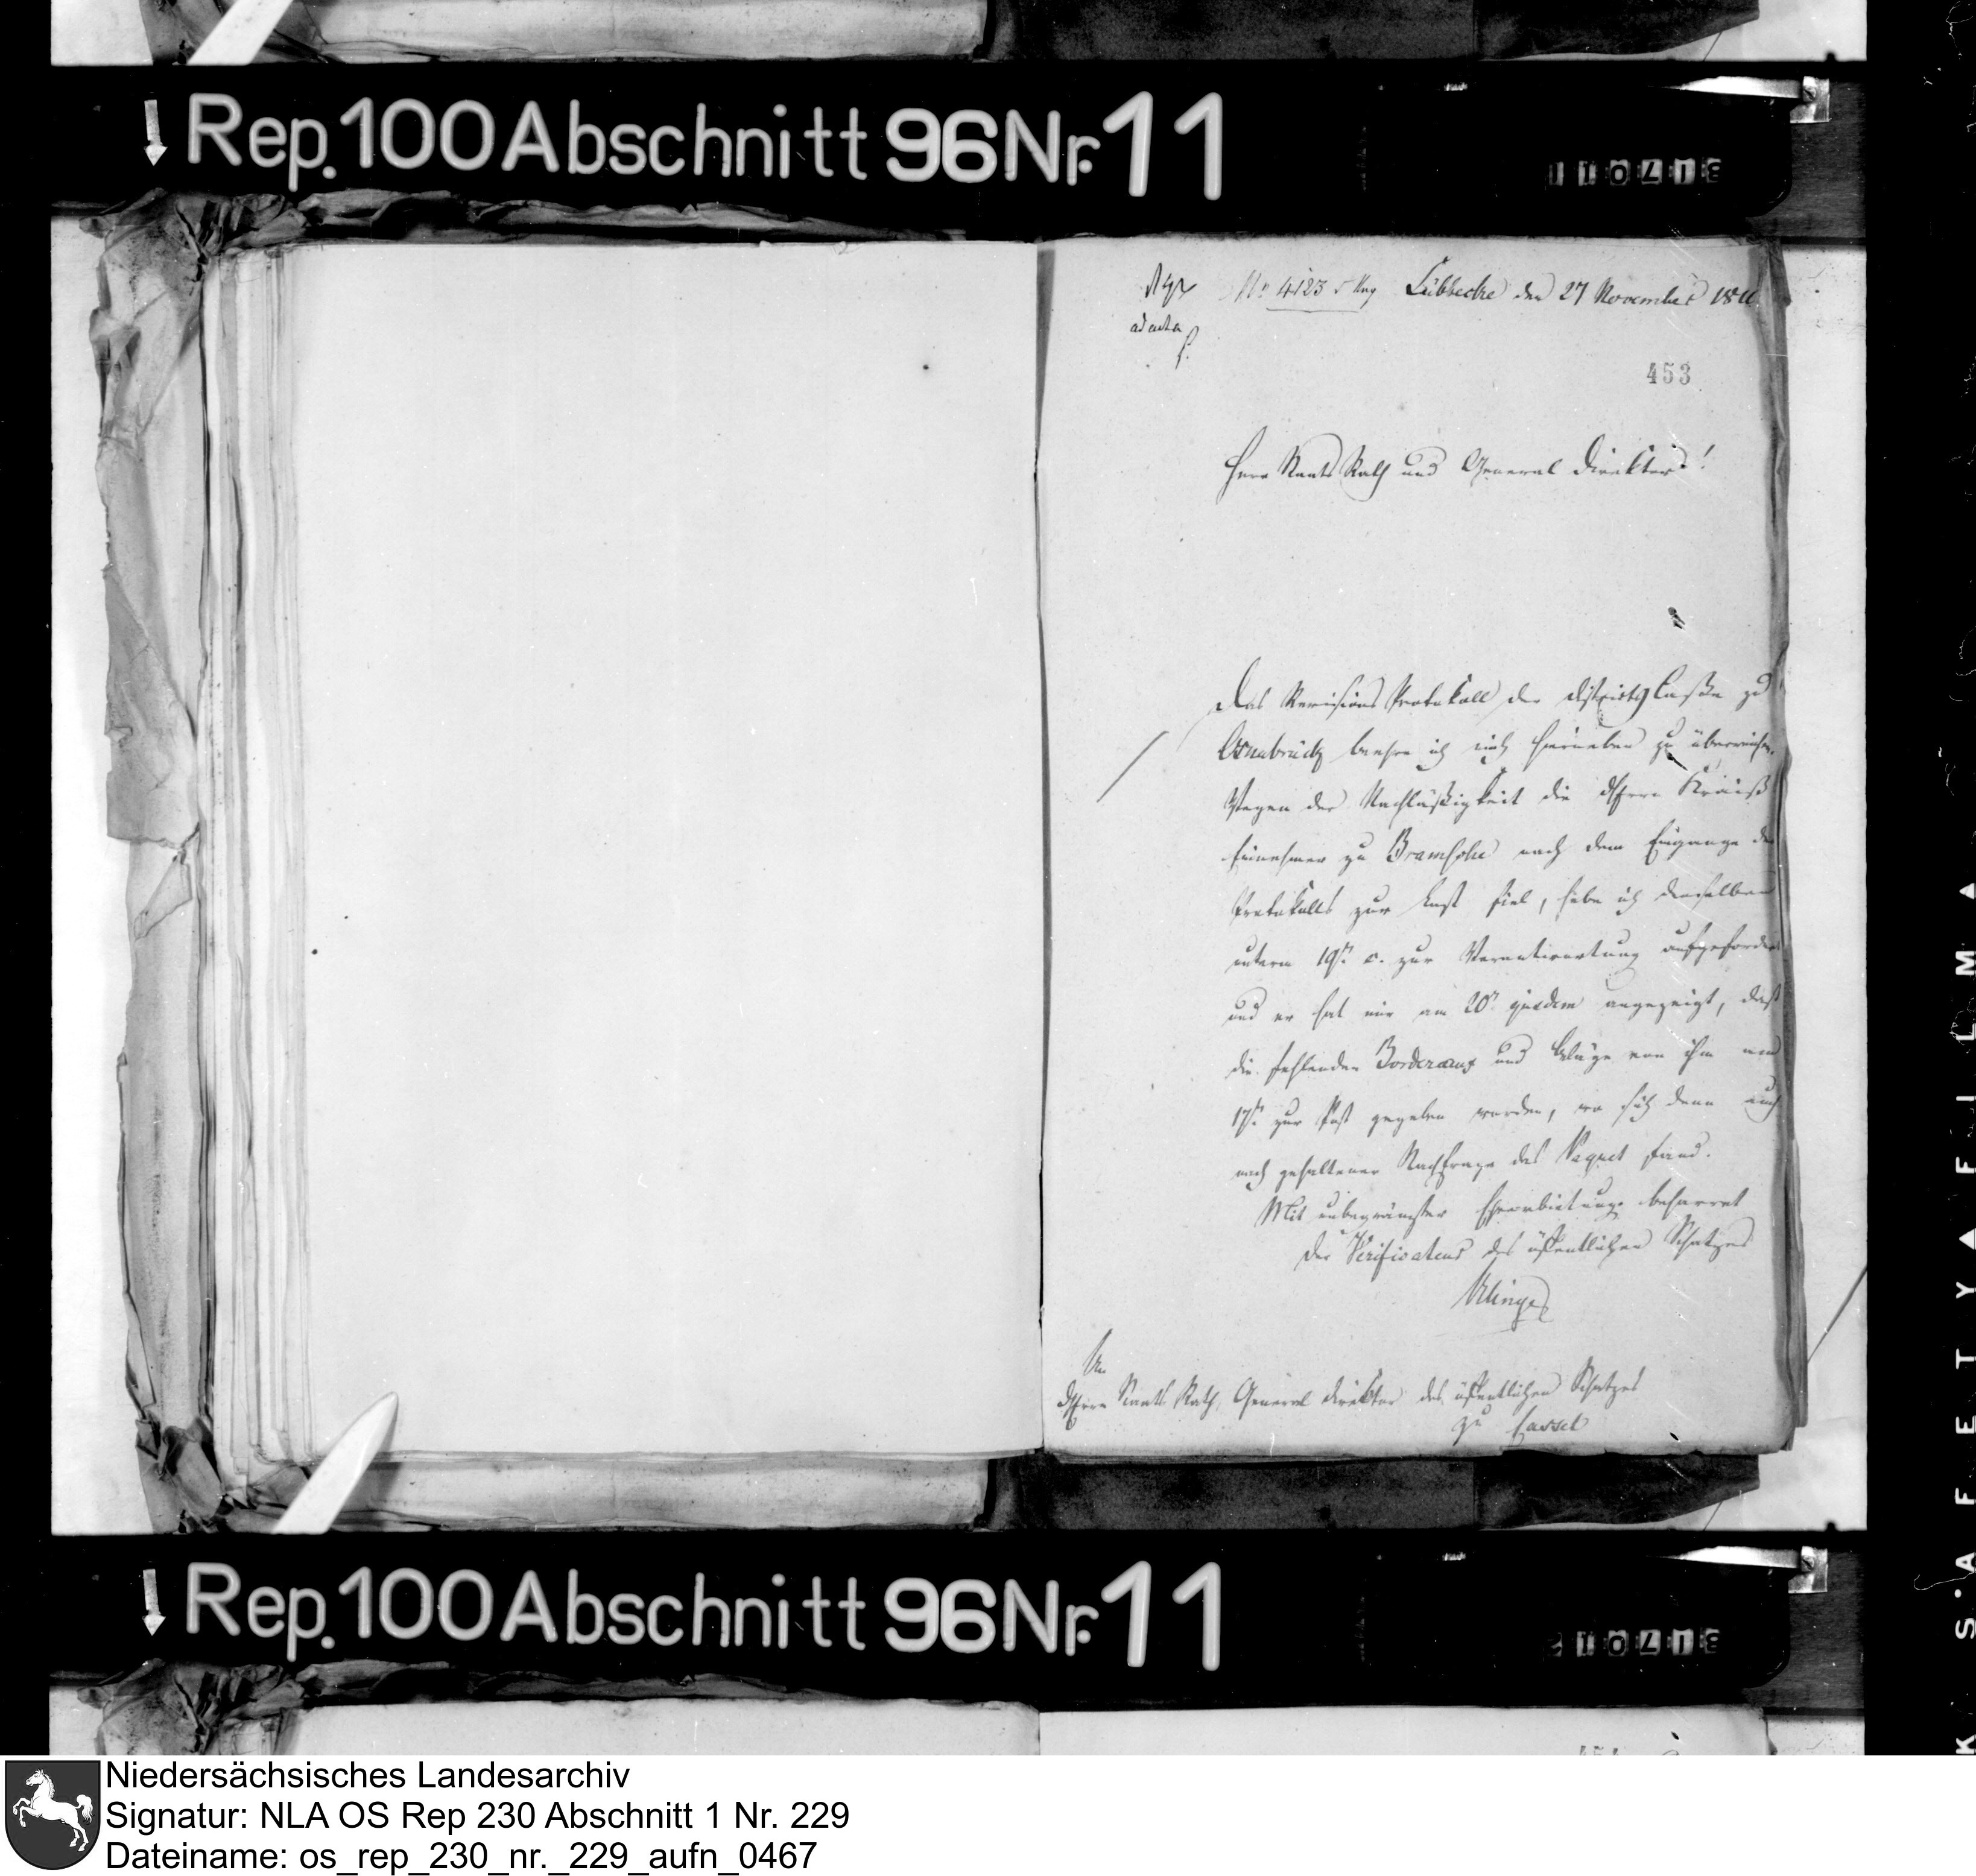 Rep. 100 Abschnitt 96 Nr. 11
317011
No 4123 Lübbecke den 27 November 1811
ad acta
453
Herr Staats Rath und General Direktor!
Das Revisions Protokoll der Districts Casse zu
Osnabrück beehre ich mich hierneben zu überreichen.
Wegen der Nachläßigkeit die dem Herrn Kreis
Einnehmer zu Bramsche nach dem Eingange des
Protokolls zur Last fiel, habe ich denselben
unterm 19t. c. zur Verantwortung aufgefordert
und er hat mir am 20t ejusdem angezeigt, daß
die fehlenden Bordereaux und Beläge von ihm am
17t. zur Post gegeben worden, wo sich denn auch
nach gehaltener Nachfrage das Paquet fand.
Mit unbegränzter Ehrerbietung beharret
der Verificateur des öffentlichen Schatzes
Klinge
An
Herrn Staats Rath, General Direktor des öffentlichen Schatzes
zu Cassel
Rep. 100 Abschnitt 96 Nr. 11
317012
Niedersächsisches Landesarchiv
Signatur: NLA OS Rep 230 Abschnitt 1 Nr. 229
Dateiname: os_rep_230_nr._229_aufn_0467
K S.A F E T Y F I L M